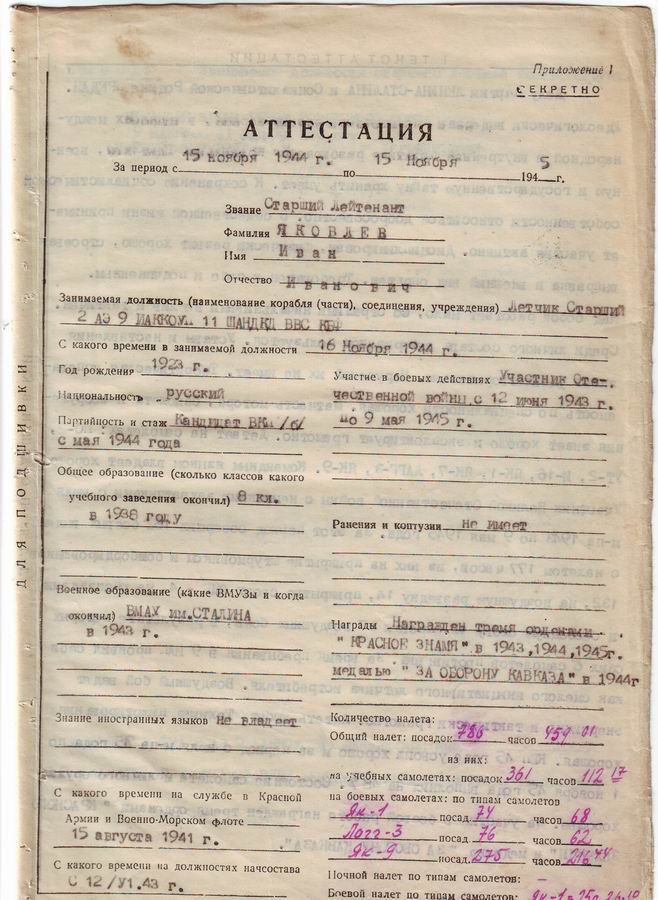 Приложение 1
СЕКРЕТНО
АТТЕСТАЦИЯ
За период с 15 ноября 1944 г. по 15 Ноября 1945 г.
Звание Старший Лейтенант
Фамилия ЯКОВЛЕВ
Имя Иван
Отчество Иванович
Занимаемая должность (наименование корабля (части), соединения, учреждения) Летчик Старший
2 АЭ 9 ИАККОУЛ 11 ШАНДКД ВВС КБФ
С какого времени в занимаемой должности 16 Ноября 1944 г.
Год рождения 1923 г.
Национальность русский
Партийность и стаж Кандидат ВКП /б/
с мая 1944 года
Участие в боевых действиях Участник Отет.
чественной войны с 12 июня 1943 г.
по 9 мая 1945 г.
Общее образование (сколько классов какого
учебного заведения окончил) 8 кл.
в 1938 году
Ранения и контузии не имеет
Военное образование (какие ВМУЗы и когда
окончил) ВМАУ им.СТАЛИНА
в 1943 г.
Награды Награжден тремя орденами
" КРАСНОЕ ЗНАМЯ" в 1943,1944,1945г.
медалью " ЗА ОБОРОНУ КАВКАЗА" в 1944г
Знание иностранных языков Не владеет
Количество налета:
Общий налет: посадок 786 часов 459 01
из них:
на учебных самолетах: посадок 361 часов 112 17
на боевых самолетах: по типам самолетов
Як-1 посад. 74 часов 68
Лагг-3 посад. 76 часов 62
Як-9 посад. 275 часов 216 44
С какого времени на службе в Красной
Армии и Военно-Морском флоте
15 августа 1941 г.
С какого времени на должностях начсостава
С 12/У1.43 г.
Ночной налет по типам самолетов: –
Боевой налет по типам самолетов:
ДЛЯ ПОДШИВКИ